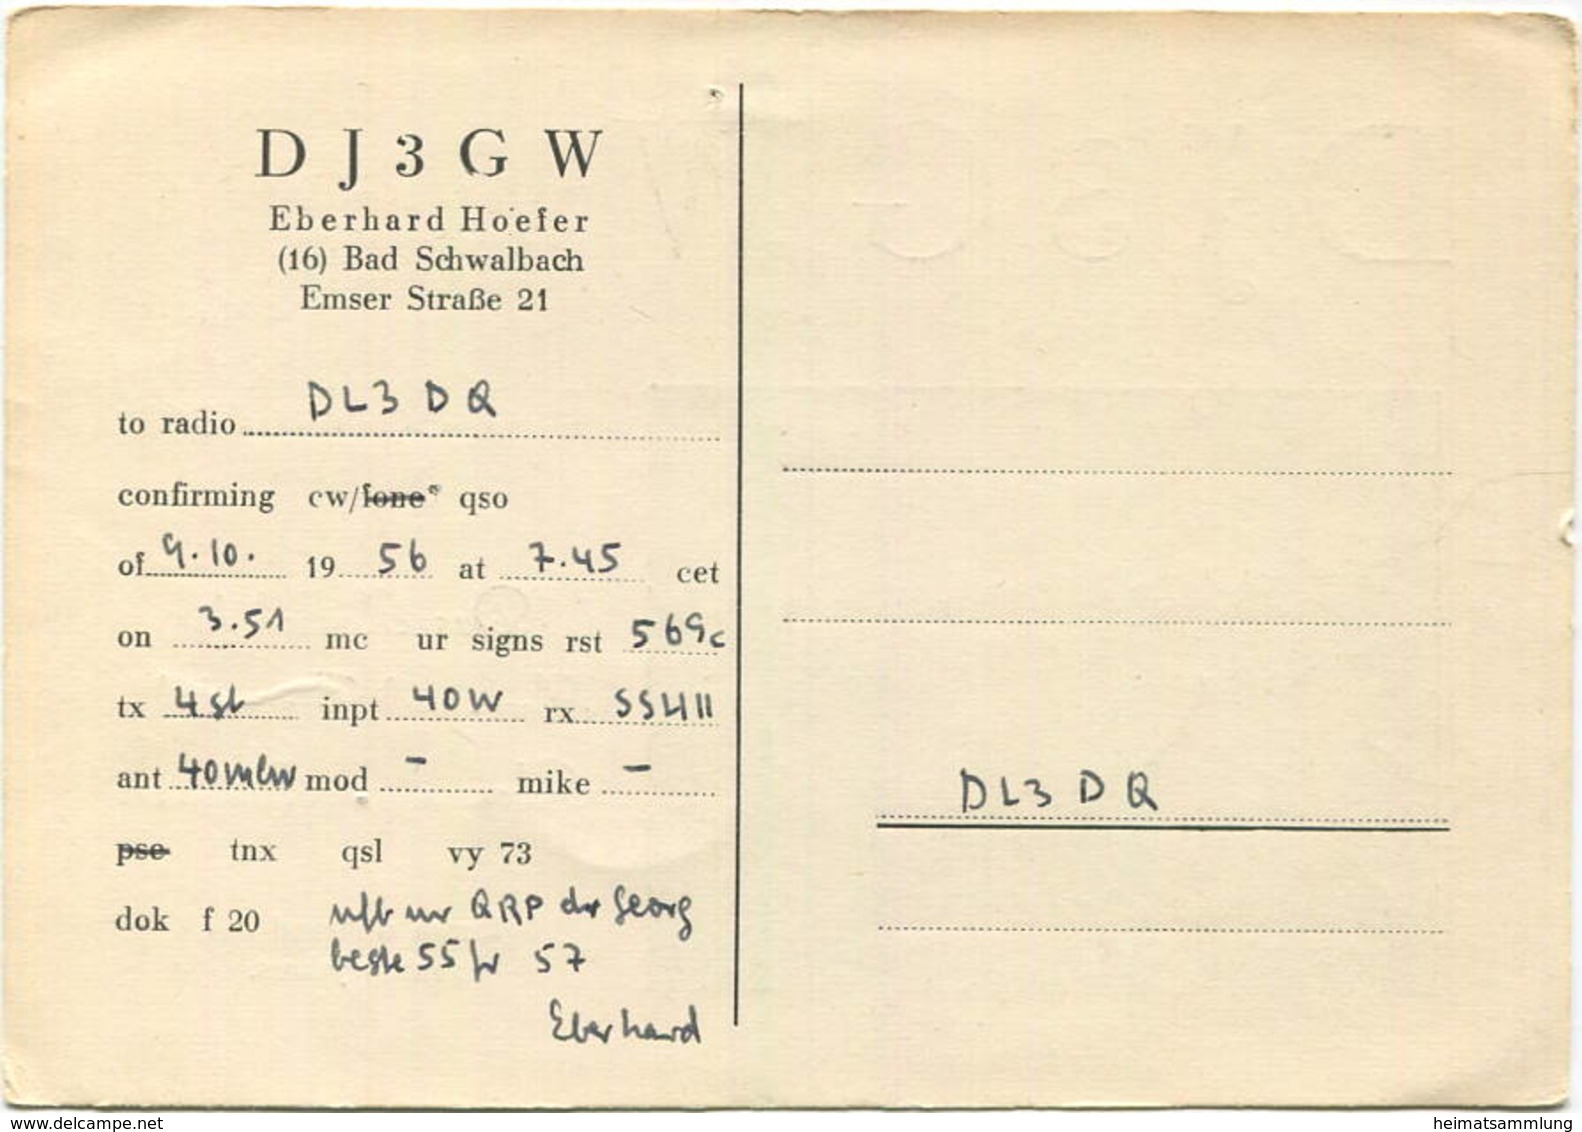 D J 3 G W
Eberhard Hoefer
(16) Bad Schwalbach
Emser Straße 21
to radio DL3DQ
confirming cw/fone* qso
of 9.10. 19 56 at 7.45 cet
on 3.51 mc ur signs rst 569c
tx 4st inpt 40W rx SSH11
ant 40m mod - mike -
pse tnx qsl vy 73
dok f 20 ufb ur QRP dr Georg
beste 55 fr 57
Eberhard
DL3DQ
www.delcampe.net
heimatsammlung